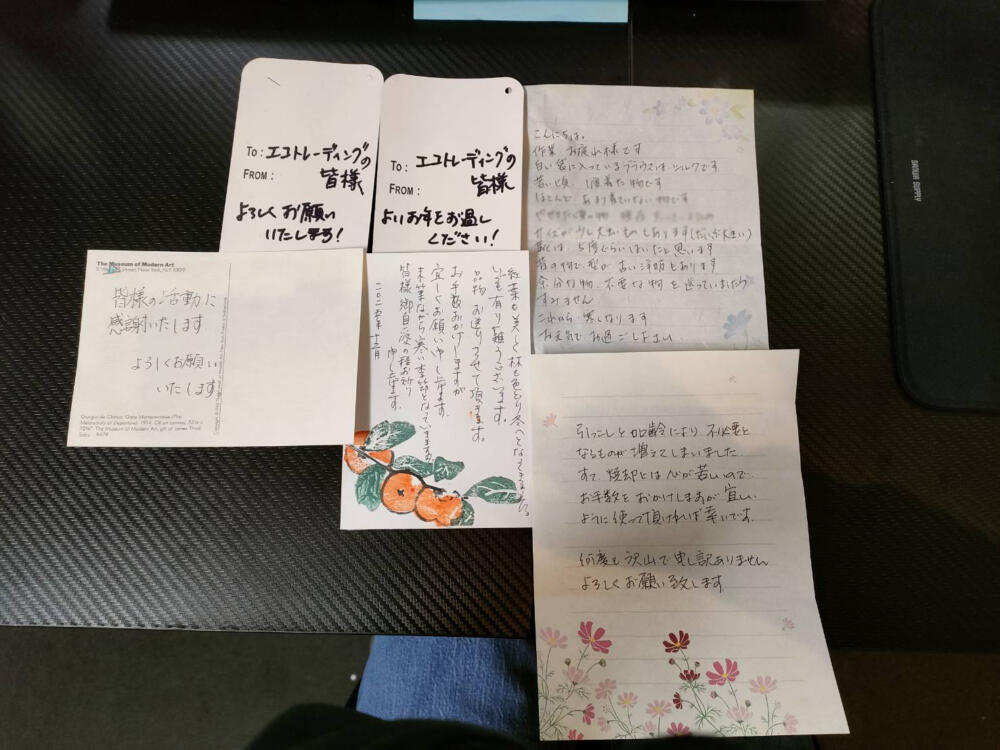 To: エコトレーディングの
皆様
FROM:
よろしくお願い
いたします!
To: エコトレーディングの
皆様
FROM:
よいお年をお過し
ください!
こんにちは。
作業 お疲れ様です
白い袋に入っているブラウスは、シルクです
若い頃、1度着た物です
ほとんど、あまり着ていない物です
サイズが少し大きいものもあります
靴は、5度ぐらいはいたと思います
昔の物で、型が古い洋服もあります
余分な物、不要な物を送っていましたら
すみません
これから寒くなります
お元気でお過ごし下さい
The Museum of Modern Art
Street, New York, N.Y. 10019
皆様の活動に
感謝いたします
よろしくお願い
いたします
Giorgio de Chirico: "Gare Montparnasse (The
Melancholy of Departure). 1914. Oil on canvas,
The Museum of Modern Art, gift of James Thrall
Soby.
紅葉も美しく林も色どり冬へとなってきました。
いつも有り難うございます。
品物、お送りさせて頂きます。
お手数おかけしますが
宜しくお願い申し上げます。
末筆ながら寒い季節となっていきますの
皆様御自愛の程お祈り
申し上げます。
二〇二五年十二月
引っこしと加齢により、不必要と
なるものが増えてしまいました。
すて、焼却とは心が苦しいので、
お手数をおかけしますが宜しい
ように使って頂ければ幸いです。
何度も沢山で申し訳ありません
よろしくお願い致します
SANWA SUPPLY